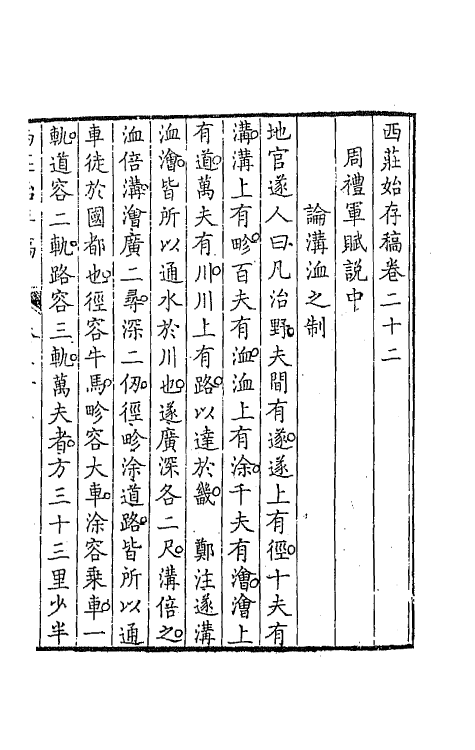 西莊始存稿卷二十二
周禮軍賦說中
論溝洫之制
地官遂人曰凡治野夫間有遂遂上有徑十夫有
溝溝上有畛百夫有洫洫上有涂千夫有澮澮上
有道萬夫有川川上有路以達於畿　鄭注遂溝
洫澮皆所以通水於川也遂廣深各二尺溝倍之
洫倍溝澮廣二尋深二仞徑畛涂道路皆所以通
車徒於國都也徑容牛馬畛容大車涂容乘車一
軌道容二軌路容三軌萬夫者方三十三里少半